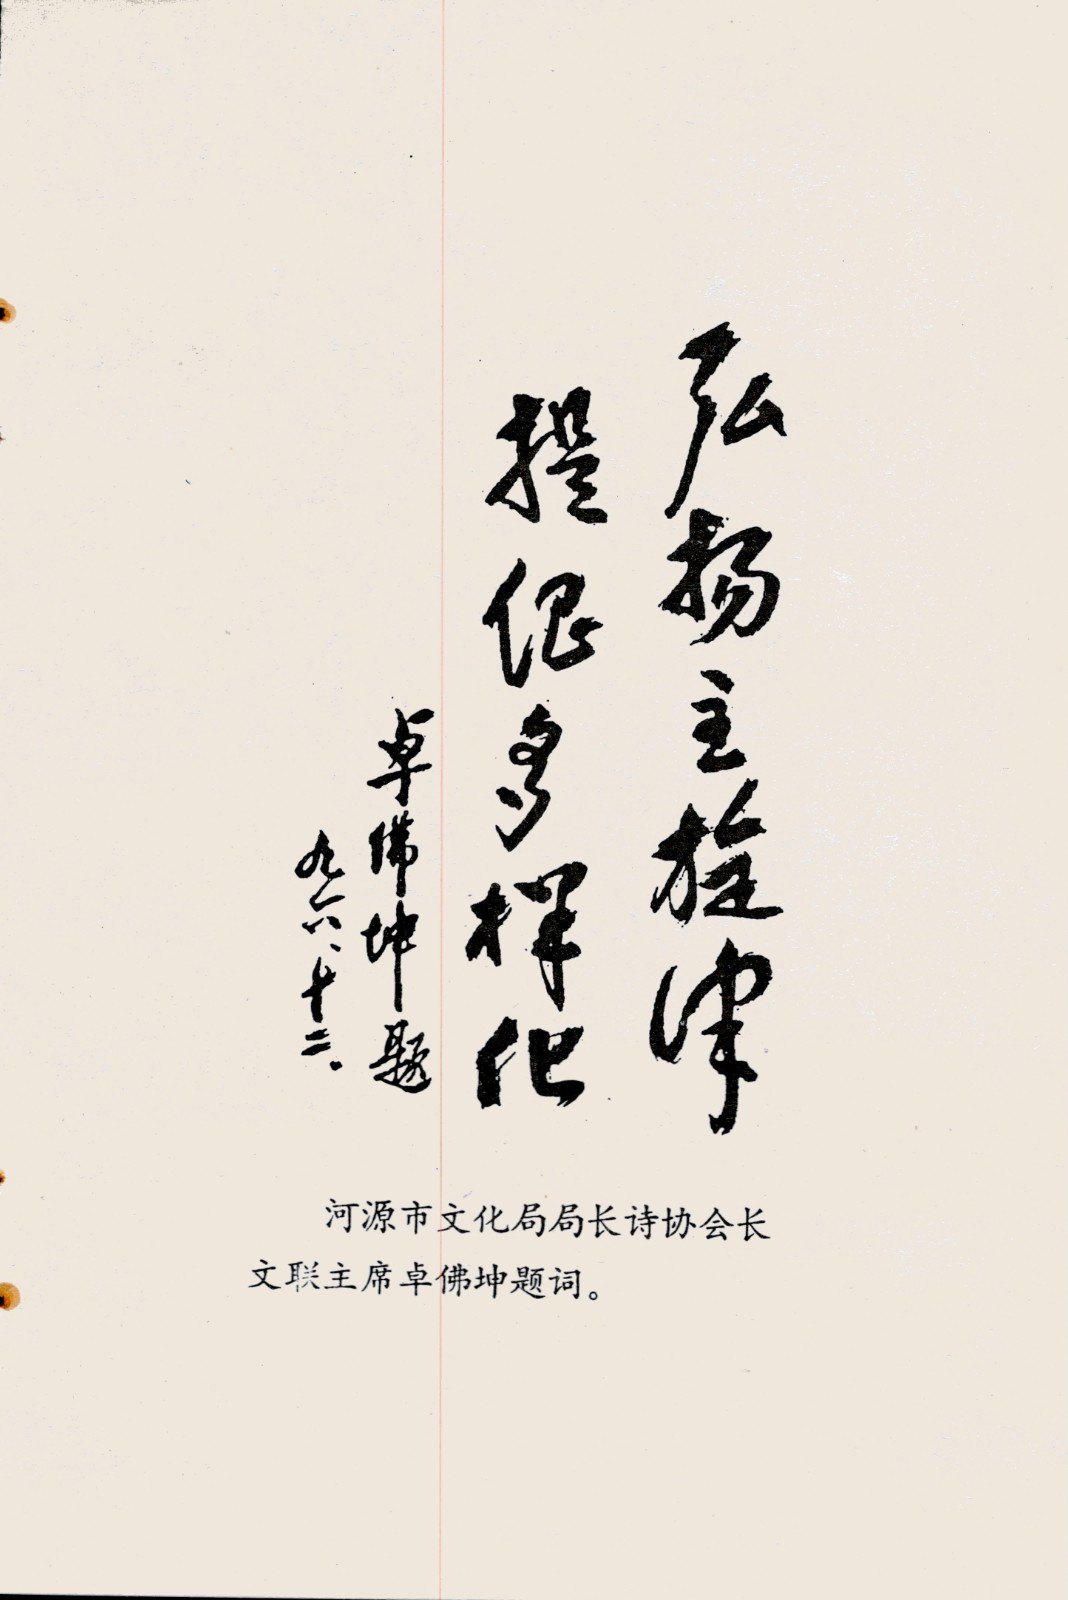 弘扬主旋律
提倡多样化
卓佛坤题
九六、十二、
河源市文化局局长诗协会长
文联主席卓佛坤题词。